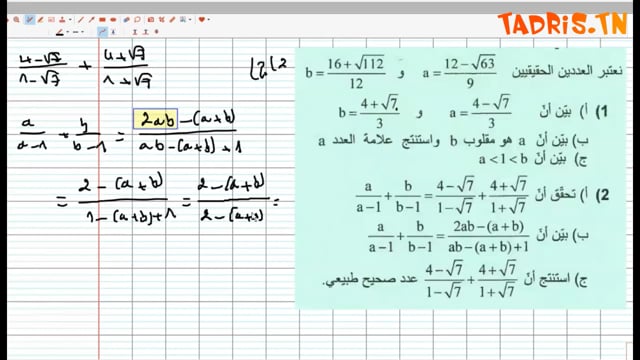 TADRIS.TN
(4-√7)/(1-√7) + (4+√7)/(1+√7)
2) ج)
a/(a-1) + b/(b-1) = (2ab-(a+b))/(ab-(a+b)+1)
= (2-(a+b))/(1-(a+b)+1) = (2-(a+b))/(2-(a+b)) =
نعتبر العددين الحقيقيين a = (12-√63)/9 و b = (16+√112)/12
1) أ) بيّن أنّ a = (4-√7)/3 و b = (4+√7)/3
ب) بيّن أنّ a هو مقلوب b واستنتج علامة العدد a
ج) بيّن أنّ a<1<b
2) أ) تحقّق أنّ a/(a-1) + b/(b-1) = (4-√7)/(1-√7) + (4+√7)/(1+√7)
ب) بيّن أنّ a/(a-1) + b/(b-1) = (2ab-(a+b))/(ab-(a+b)+1)
ج) استنتج أنّ (4-√7)/(1-√7) + (4+√7)/(1+√7) عدد صحيح طبيعي.